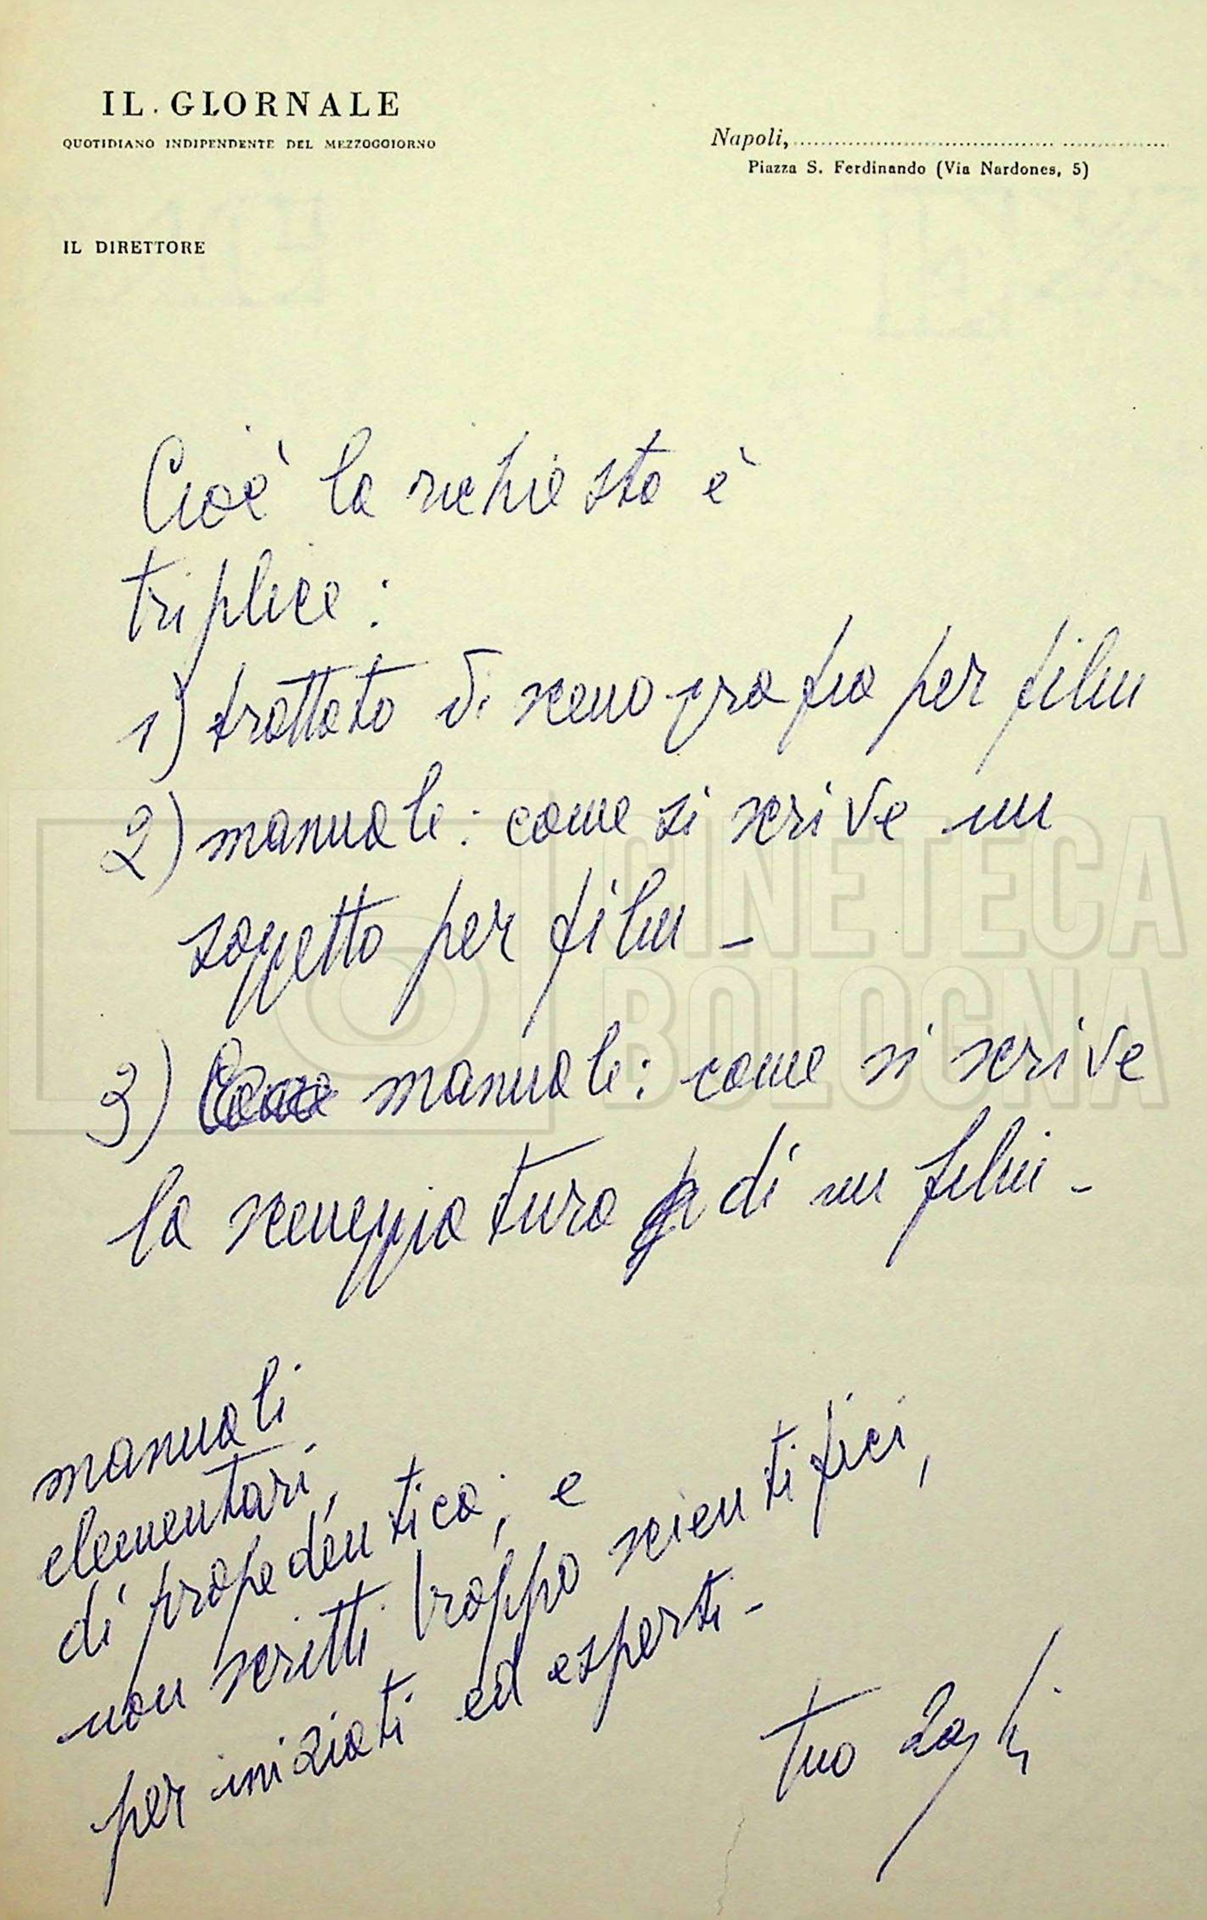 IL GIORNALE
QUOTIDIANO INDIPENDENTE DEL MEZZOGGIORNO
Napoli,
Piazza S. Ferdinando (Via Nardones, 5)
IL DIRETTORE
Cioè la richiesta è
triplice:
1) trattato di scenografia per film
2) manuale: come si scrive un
soggetto per film -
3) manuale: come si scrive
la sceneggiatura di un film -
manuali
elementari,
di propedeutica, e
non scritti troppo scientifici,
per iniziati ed esperti -
tuo
CINETECA
BOLOGNA